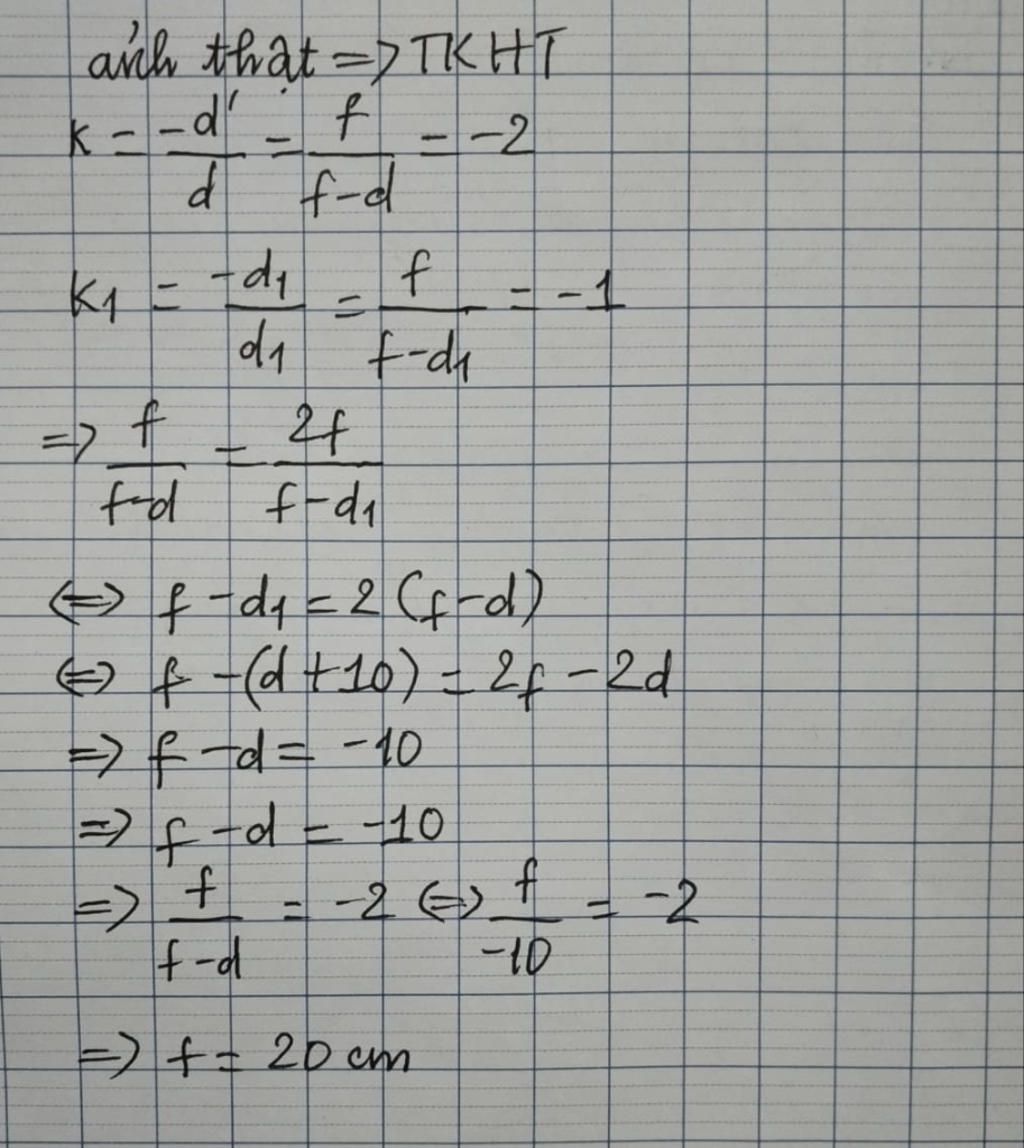 ảnh thật => TKHT
K = -d'/d = f/(f-d) = -2
K1 = -d1/d1 = f/(f-d1) = -1
=> f/(f-d) = 2f/(f-d1)
<=> f - d1 = 2(f-d)
<=> f - (d+10) = 2f - 2d
=> f - d = -10
=> f - d = -10
=> f/(f-d) = -2 <=> f/-10 = -2
=> f = 20 cm